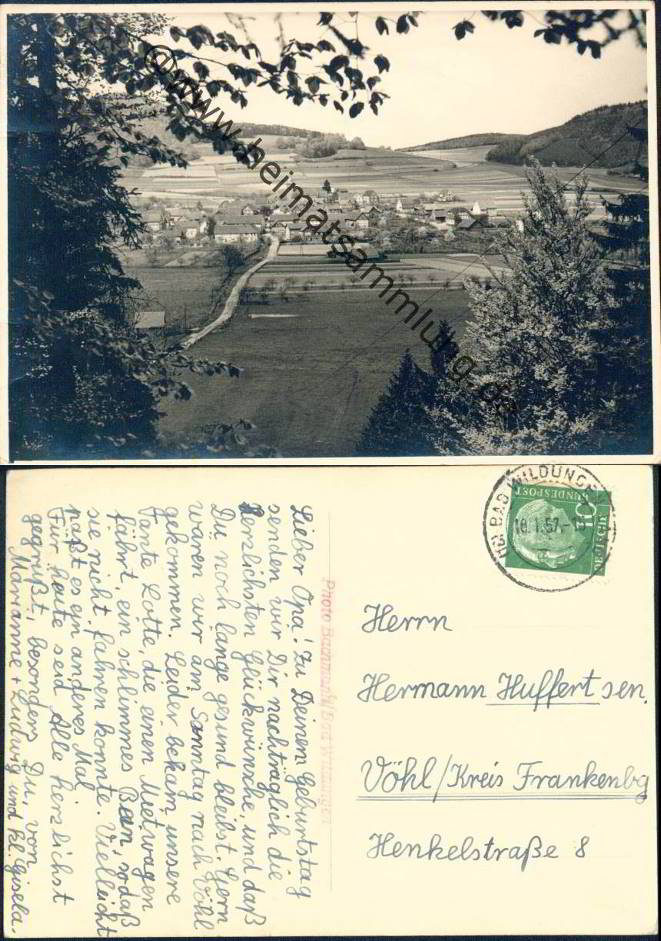 ©www.heimatsammlung.de
Lieber Opa! Zu Deinem Geburtstag
senden wir Dir nachträglich die
herzlichsten Glückwünsche, und daß
Du noch lange gesund bleibst. Gern
wären wir am Sonntag nach Vöhl
gekommen. Leider bekam unsere
Tante Lotte, die einen Mietwagen
fährt, ein schlimmes Bein, sodaß
sie nicht fahren konnte. Vielleicht
paßt es ein anderes Mal.
Für heute seid Alle herzlichst
gegrüßt, besonders Du, von
Marianne + Ludwig und kl. Gisela.
Photo Bad Wildungen
BAD WILDUNG
18.1.57.-
DEUTSCHE
BUNDESPOST
Herrn
Hermann Huffert sen.
Vöhl/Kreis Frankenbg
Henkelstraße 8